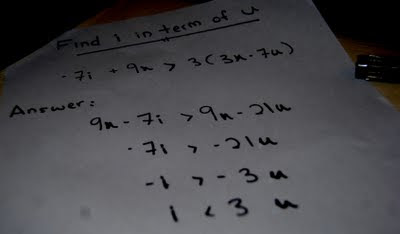 Find i in term of u
-7i + 9x > 3(3x-7u)
Answer:
9x - 7i > 9x - 21u
-7i > -21u
-i > -3u
i < 3 u